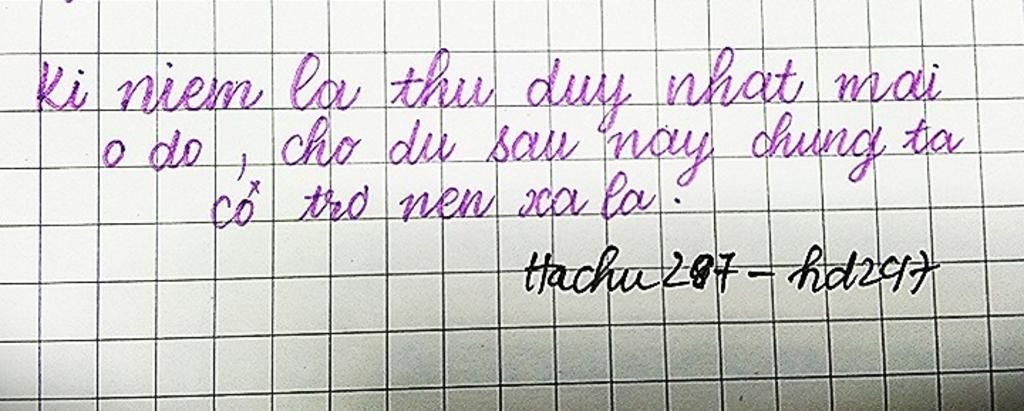 Ki niem la thu duy nhat mai
o do, cho du sau nay chung ta
cố tro nen xa la.
Hachu297 - hd297